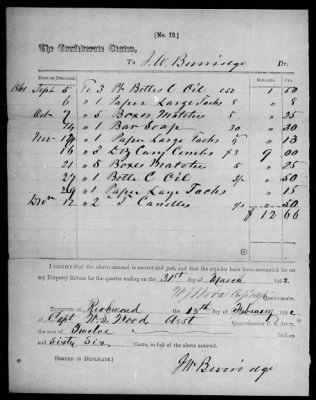 [No. 12.]
The Confederate States,
To J. W. Berridge Dr.
DATE OF PURCHASE.
1861 Sept 5 To 3 Pt Bottles C Oil c50 1 50
6 " 1 Paper Large Tacks 8
Oct 7 " 5 Boxes Matches 5 25
14 " 1 Bar Soap 30 30
Nov 14 " 1 Paper Large Tacks 13
16 " 3 Doz Curry Combs $3 9 00
21 " 5 Boxes Matches 5 25
27 " 1 Bottle C Oil 50 50
29 " 1 Paper Large Tacks 15
12 " 2 Candles 50
$ 12 66
I CERTIFY that the above account is correct and just, and that the articles have been accounted for on
my Property Return for the quarter ending on the 31st day of March 1862
W S Wood
Quartermaster.
RECEIVED at Richmond the 15th of February 1862
of Capt. W. S. Wood Asst Quartermaster C. S. Army,
the sum of Twelve Dollars
and Sixty Six Cents, in full of the above account.
(SIGNED IN DUPLICATE.)
J W Berridge